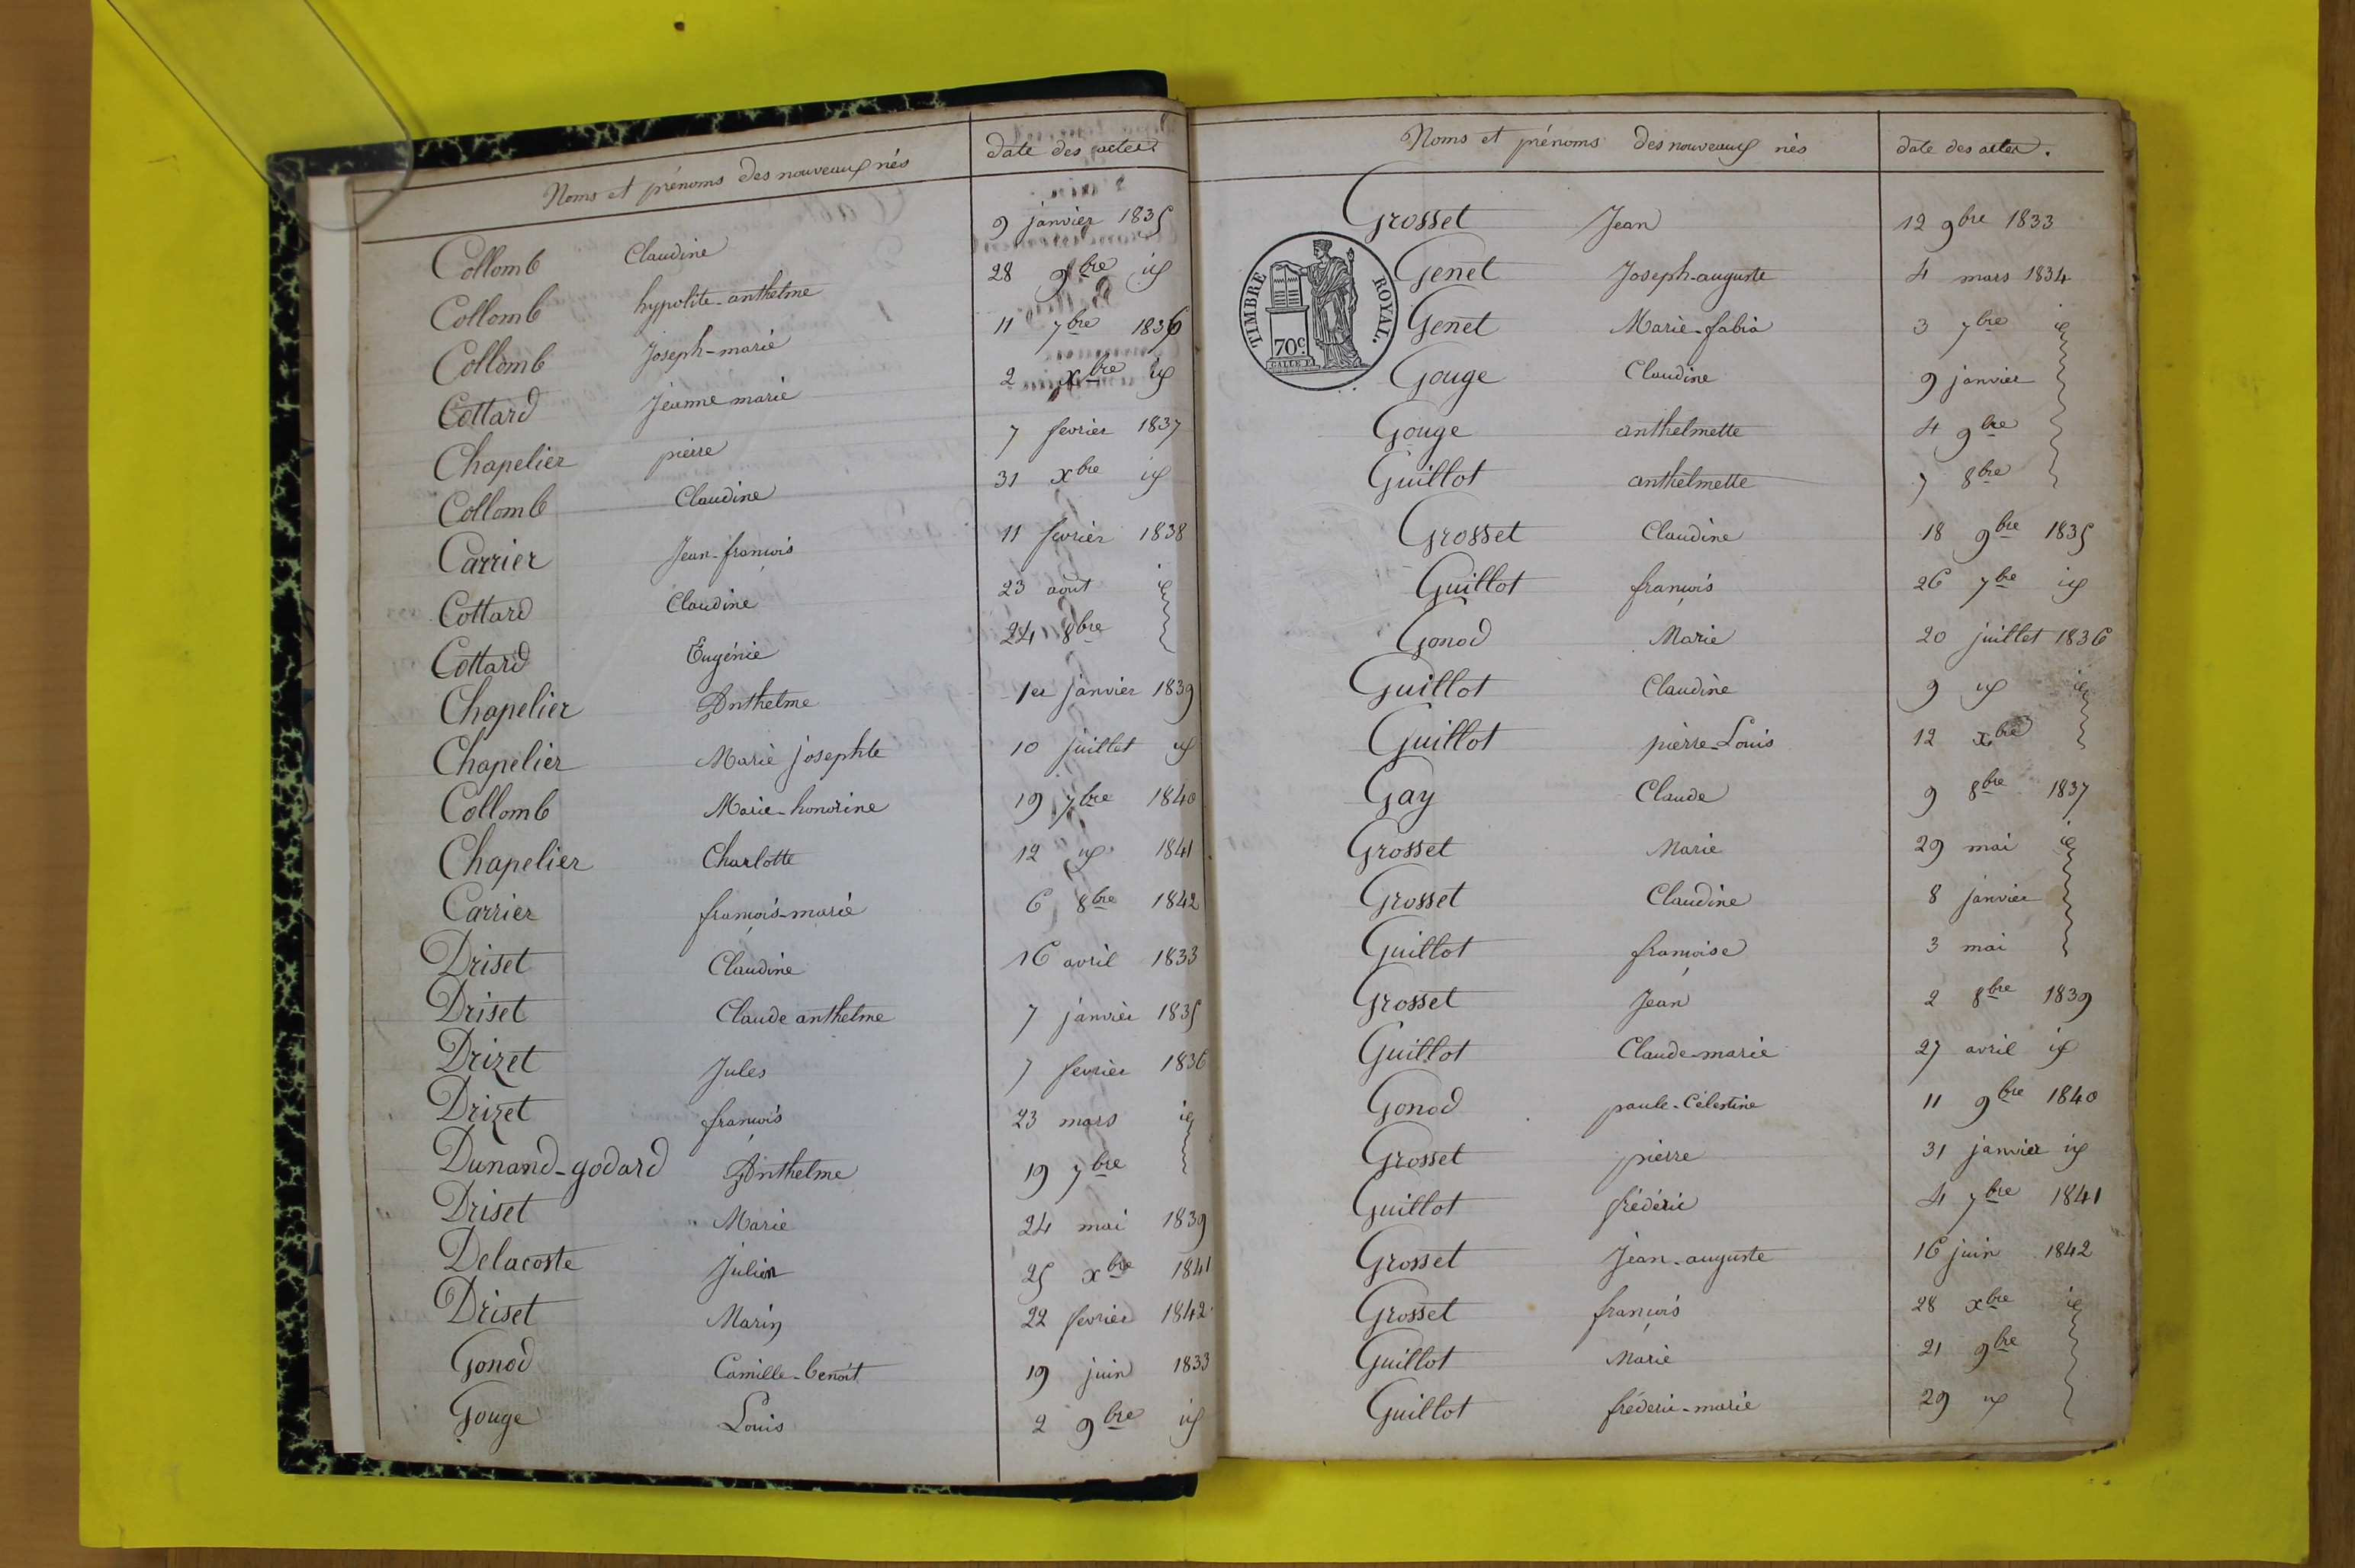 Noms et prénoms des nouveaux nés date des actes
Collomb Claudine 9 janvier 1835
Collomb hypolite-anthelme 28 9bre id
Collomb Joseph-marie 11 7bre 1836
Cottard Jeanne marie 2 xbre id
Chapelier pierre 7 fevrier 1837
Collomb Claudine 31 xbre id
Carrier Jean-françois 11 fevrier 1838
Cottard Claudine 23 août id
Cottard Eugénie 24 8bre
Chapelier Anthelme 1er janvier 1839
Chapelier Marie josephte 10 juillet id
Collomb Marie-honorine 19 7bre 1840
Chapelier Charlotte 12 id 1841
Carrier françois-marie 6 8bre 1842
Driset Claudine 16 avril 1833
Driset Claude anthelme 7 janvier 1835
Drizet Jules 7 fevrier 1836
Drizet françois 23 mars id
Dunand-godard Anthelme 19 7bre
Driset Marie 24 mai 1839
Delacoste Julien 25 xbre 1841
Driset Marin 22 fevrier 1842
Gonod Camille-benoit 19 juin 1833
Gouge Louis 2 9bre id
Noms et prénoms des nouveaux nés date des actes.
TIMBRE ROYAL.
70c
Grosset Jean 12 9bre 1833
Genet Joseph-auguste 4 mars 1834
Genet Marie-fabia 3 7bre id
Gouge Claudine 9 janvier
Gouge anthelmette 4 9bre
Guillot anthelmette 7 8bre
Grosset Claudine 18 9bre 1835
Guillot françois 26 7bre id
Gonod Marie 20 juillet 1836
Guillot Claudine 9 id id
Guillot pierre-Louis 12 xbre
Gay Claude 9 8bre 1837
Grosset Marie 29 mai id
Grosset Claudine 8 janvier
Guillot françoise 3 mai
Grosset Jean 2 8bre 1839
Guillot Claude-marie 27 avril id
Gonod paule-Célestine 11 9bre 1840
Grosset pierre 31 janvier id
Guillot fréderic 4 7bre 1841
Grosset Jean-auguste 16 juin 1842
Grosset françois 28 xbre id
Guillot Marie 21 9bre
Guillot fréderic-marie 29 id